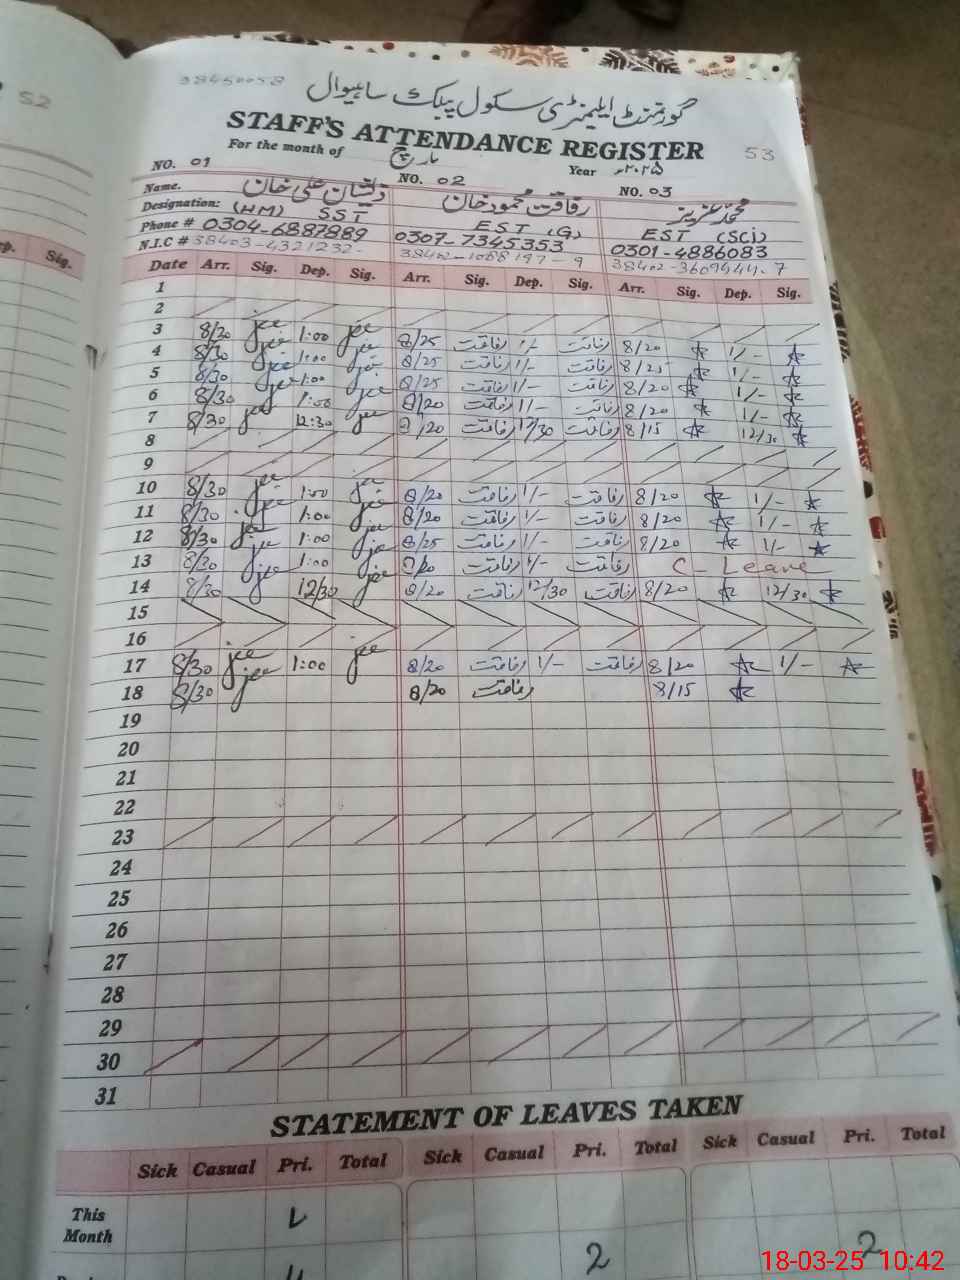 52
38450058
گورنمنٹ ایلیمنٹری سکول پبلک ساہیوال
STAFF'S ATTENDANCE REGISTER
53
For the month of مارچ Year ۲۰۲۵ء
NO. 01 NO. 02 NO. 03
Name. ذیشان علی خان رفاقت محمود خان محمد عزیز
Designation: (HM) SST EST (G) EST (Sci)
Phone # 0304-6887889 0307-7345353 0301-4886083
N.I.C # 38403-4321232- 38402-1068197-9 38402-3609444-7
ep. Sig.
Date Arr. Sig. Dep. Sig. Arr. Sig. Dep. Sig. Arr. Sig. Dep. Sig.
1
2
3 8/20 jee 1:00 jee 8/25 رفاقت 1/- رفاقت 8/20 1/-
4 8/30 jee 1:00 jee 8/25 رفاقت 1/- رفاقت 8/25 1/-
5 8/30 jee 1:00 jee 8/25 رفاقت 1/- رفاقت 8/20 1/-
6 8/30 jee 1:00 jee 8/20 رفاقت 1/- رفاقت 8/20 1/-
7 8/30 jee 12:30 jee 8/20 رفاقت 12/30 رفاقت 8/15 12/30
8
9
10 8/30 jee 1:00 jee 8/20 رفاقت 1/- رفاقت 8/20 1/-
11 8/30 jee 1:00 jee 8/20 رفاقت 1/- رفاقت 8/20 1/-
12 8/30 jee 1:00 jee 8/25 رفاقت 1/- رفاقت 8/20 1/-
13 8/30 jee 1:00 jee 8/20 رفاقت 1/- رفاقت C - Leave
14 8/30 jee 12/30 jee 8/20 رفاقت 12/30 رفاقت 8/20 12/30
15
16
17 8/30 jee 1:00 jee 8/20 رفاقت 1/- رفاقت 8/20 1/-
18 8/30 jee 8/20 رفاقت 8/15
19
20
21
22
23
24
25
26
27
28
29
30
31
STATEMENT OF LEAVES TAKEN
Sick Casual Pri. Total Sick Casual Pri. Total Sick Casual Pri. Total
This Month
2 2
18-03-25 10:42